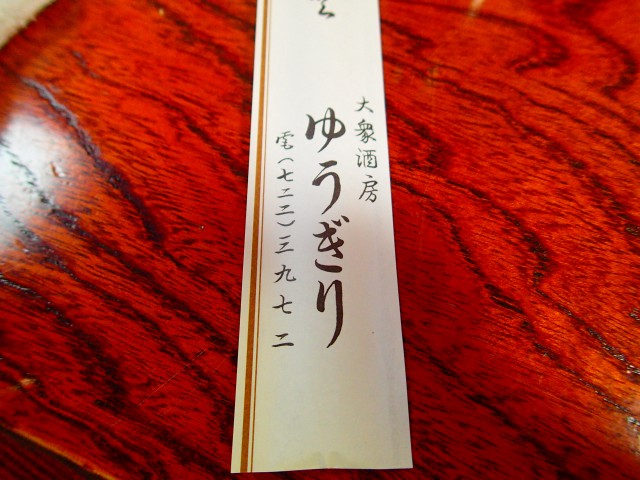 大衆酒房
ゆうぎり
電(七二二)三九七二